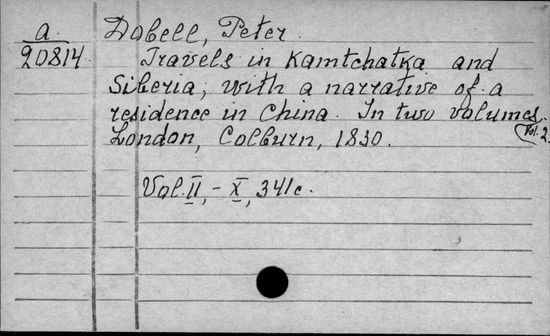 a.
20814
Dobell, Peter.
Travels in Kamtchatka and
Siberia; with a narrative of a
residence in China. In two volumes.
Vol. 2.
London, Colburn, 1830.
Vol. II, - X, 341c.